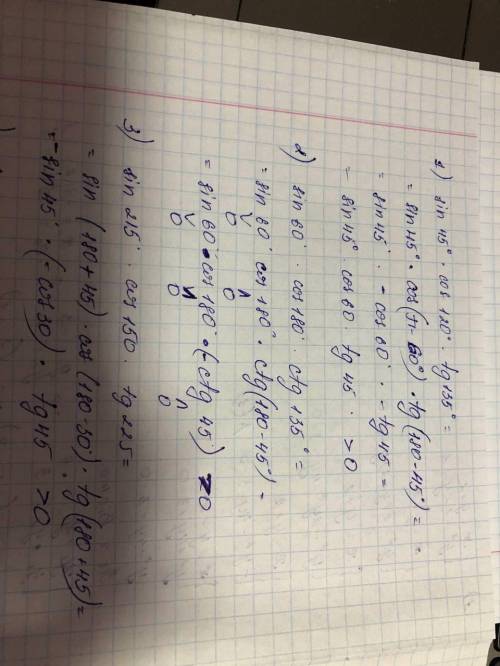 1) sin 45° · cos 120° · tg 135° =
= sin 45° · cos (π - 60°) · tg (180 - 45°) =
= sin 45° · - cos 60° · - tg 45 =
= sin 45° · cos 60 tg 45 · >0
2) sin 60° · cos 180° · ctg 135° =
= sin 60° cos 180° · ctg (180 - 45°) =
= sin 60° · cos 180° · (- ctg 45) >0
3) sin 215° · cos 150 · tg 225 =
= sin (180 + 45) · cos (180 - 30°) · tg (180 + 45) =
= - sin 45° · (- cos 30) · tg 45 >0